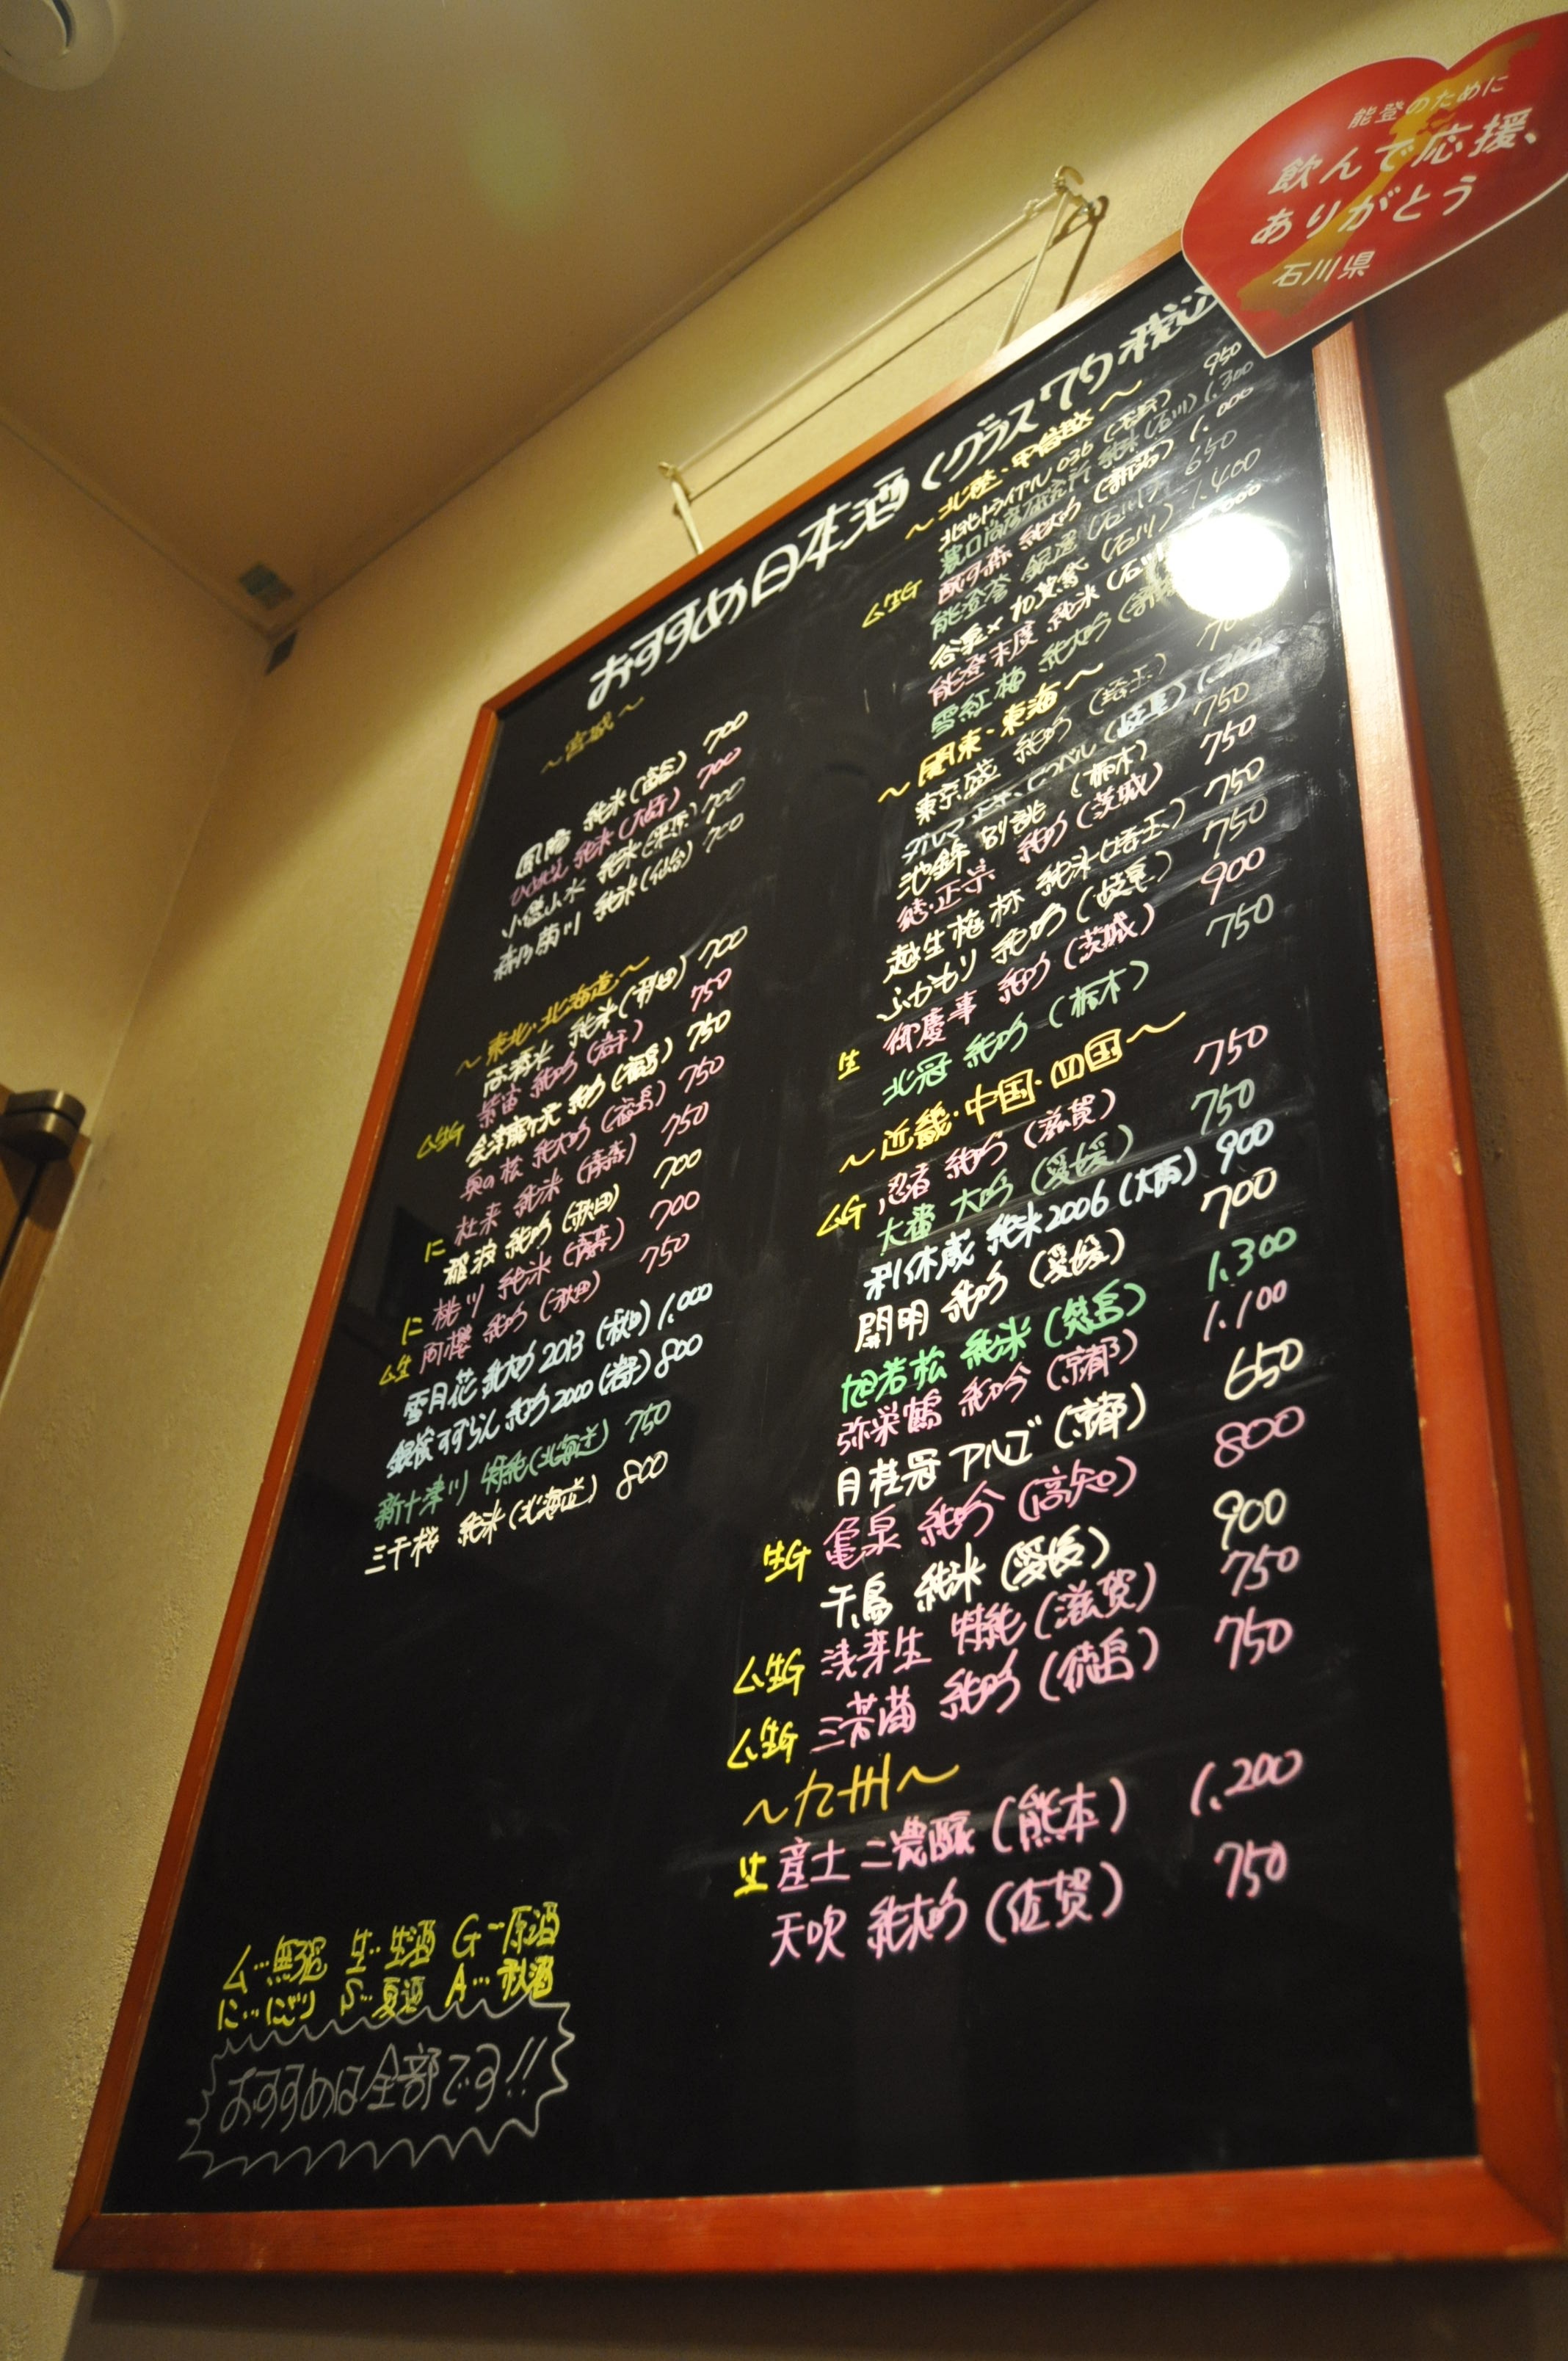 能登のために
飲んで応援、
ありがとう
石川県
おすすめ日本酒 (グラス 税込
~宮城~
鳳陽 純米 (富谷) 700
純米 (大崎) 700
小僧山水 純米 (栗原) 700
森乃菊川 純米 (仙台) 700
~東北・北海道~
高清水 純米 (秋田) 700
ム生G 菊盛 純吟 (岩手) 750
純吟 (福島) 750
奥の松 純大吟 (福島) 750
に 杜来 純米 (青森) 750
稲波 純吟 (秋田) 700
に 桃川 純米 (青森) 700
ム生 阿櫻 純吟 (秋田) 750
雪月花 純大吟 2013 (秋田) 1,000
銀河すずらん 純吟 2000 (岩手) 800
新十津川 特純 (北海道) 750
三千桜 純米 (北海道) 800
ム…無濾過 生…生酒 G…原酒
に…にごり S…夏酒 A…秋酒
おすすめは全部です!!
~北陸・甲信越~
トライアル 036 950
農口尚彦研究所 純米 (石川) 1,300
ム生G 純大吟 (新潟) 1,000
能登誉 銀選 (石川) 650
谷泉×加賀鳶 (石川) 1,400
能登末廣 純米 (石川)
雪紅梅 純大吟
~関東・東海~
東京盛 純吟 (埼玉) 700
(岐阜) 1,200
池錦 別誂 (栃木) 750
結・正宗 純吟 (茨城) 750
越生梅林 純米 (埼玉) 750
ふかもり 純吟 (岐阜) 750
生 御慶事 純吟 (茨城) 900
北冠 純吟 (栃木) 750
~近畿・中国・四国~
ムG 忍者 純吟 (滋賀) 750
大番 大吟 (愛媛) 750
利休蔵 純米 2006 (大阪) 900
開明 純吟 (愛媛) 700
旭若松 純米 (徳島) 1,300
弥栄鶴 純吟 (京都) 1,100
月桂冠 アルゴ (京都) 650
生G 亀泉 純吟 (高知) 800
千鳥 純米 (愛媛) 900
ム生G 浅芽生 特純 (滋賀) 750
ム生G 三芳菊 純吟 (徳島) 750
~九州~
生 産土 二農醸 (熊本) 1,200
天吹 純大吟 (佐賀) 750